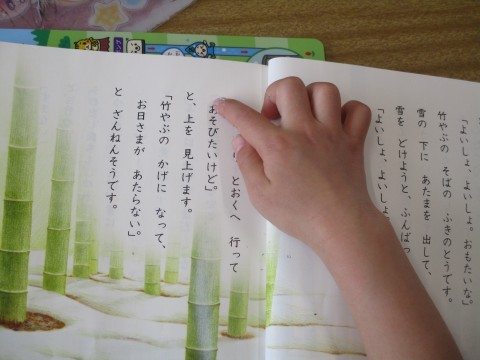 「よいしょ、よいしょ。おもたいな。」
竹やぶの そばの ふきのとうです。
雪の 下に あたまを 出して、
雪を どけようと、ふんばっ
「よいしょ、よいしょ
とおくへ 行って
あそびたいけど」。
と、上を 見上げます。
「竹やぶの かげに なって、
お日さまが あたらない」。
と ざんねんそうです。